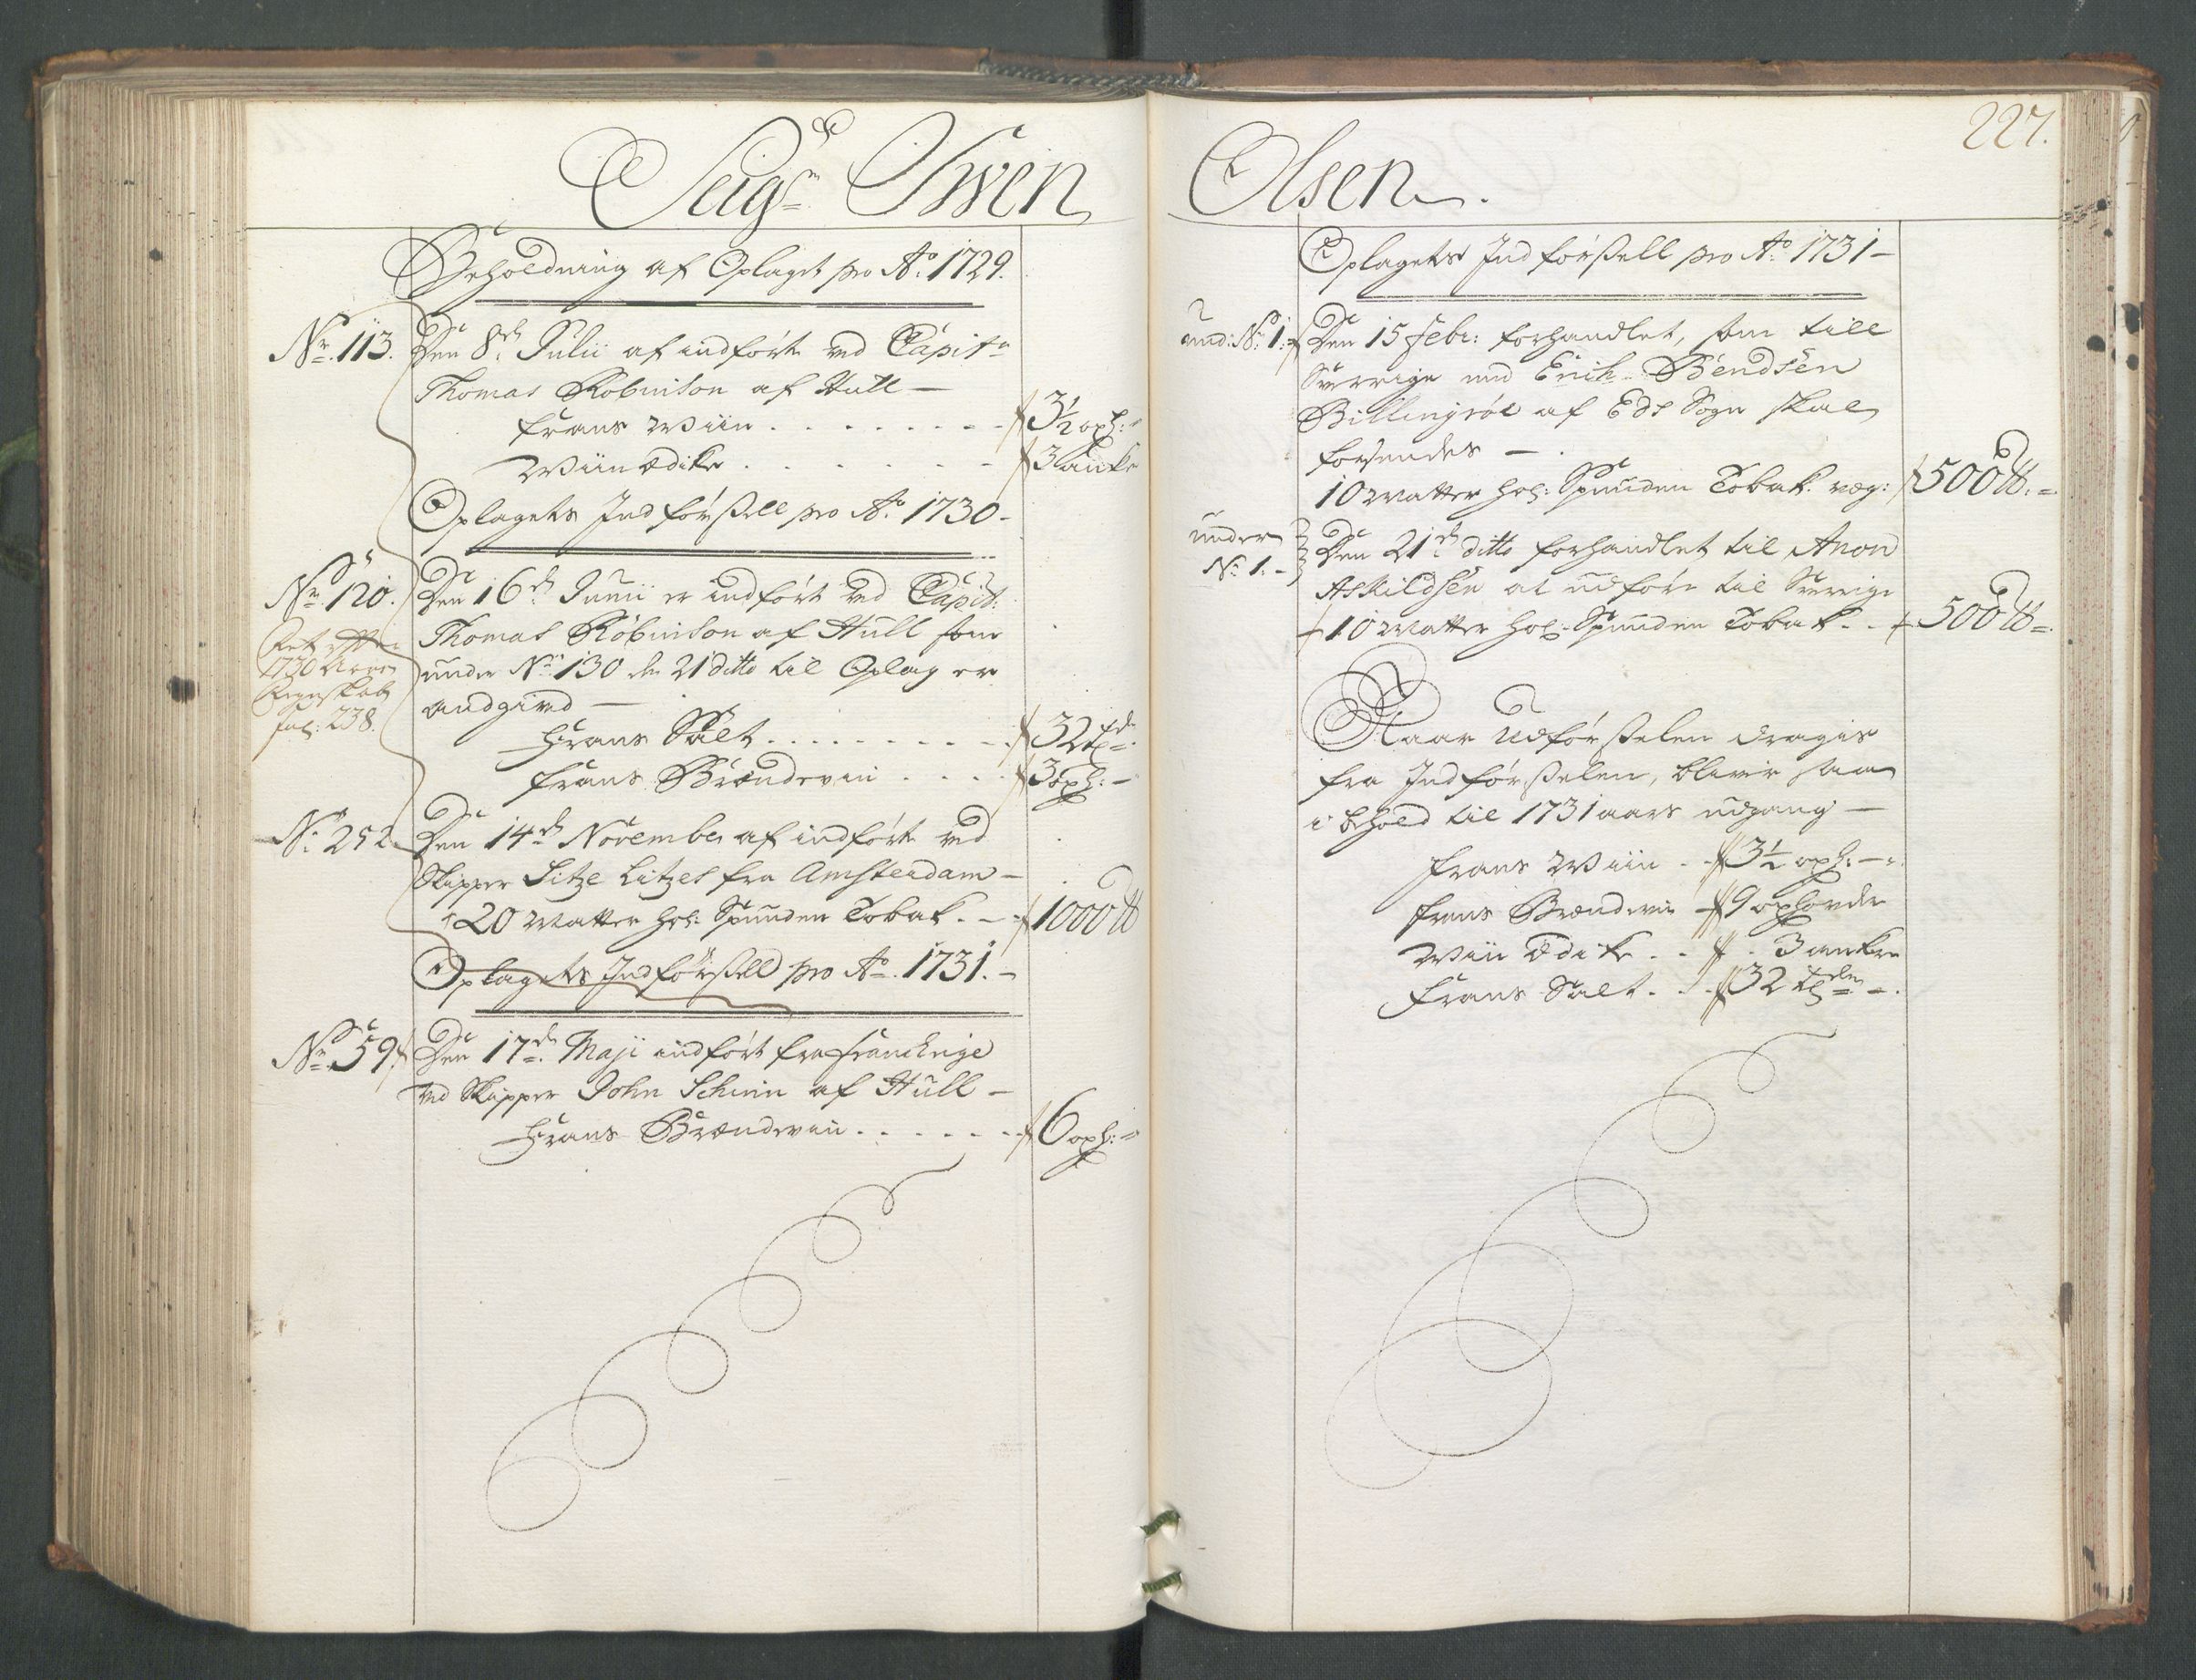 Seigr Swen Olsen.
227.
Beholdning af Oplaget pro Ao: 1729.
No. 113. Den 8de Julii af indførte ved Capitn
Thomas Robinson af Hull —
frans Wiin . . . . . . . 3½ oxh:
Wiinædike . . . . . . 3 ancker
Oplagets Indførsell pro Ao: 1730 -
No. 120. Den 16de Junii er indført ved Capit:
Thomas Robinson af Hull som
under No: 130 den 21 ditto til Oplag er
andgived —
1730 Aars
Regnskab
fol: 238.
Frans Salt . . . . . . . . . 32 tdr
frans Brændeviin . . . . 3 oxh: -
No: 252. Den 14de November af indførte ved
Skipper Sitze Litzes fra Amsterdam -
20 Matter hol: Spunden Tobak. - 1000 ℔
Oplagets Indførsell pro Ao. 1731. -
No. 59. Den 17de Maji indført fra Franckrige
ved Skipper John Schin af Hull -
Frans Brændeviin . . . . . . 6 oxh: -
Oplagets Indførsell pro Ao: 1731 -
und: No: 1: Den 15 Febr: forhandlet, som till
Sverrige med Erich Bendsen
Billingsøe af Eds Sogn skal
forsendes —
10 Matter hol: Spunden Tobak. veg: 500 ℔. -
under
No. 1. - Den 21de ditto forhandlet til Anon
Askildsen at udføre til Sverrige
10 Matter hol: Spunden Tobak. . . 500 ℔ -
Naar Udførselen dragis
fra Indførselen, blivir saa
i behold til 1731 aars udgang —
frans Wiin . . 3½ oxh: -
frans Brændeviin 9 oxhovder
Wiin Ædike . . 3 ankere
frans Salt . . . 32 tdr -.